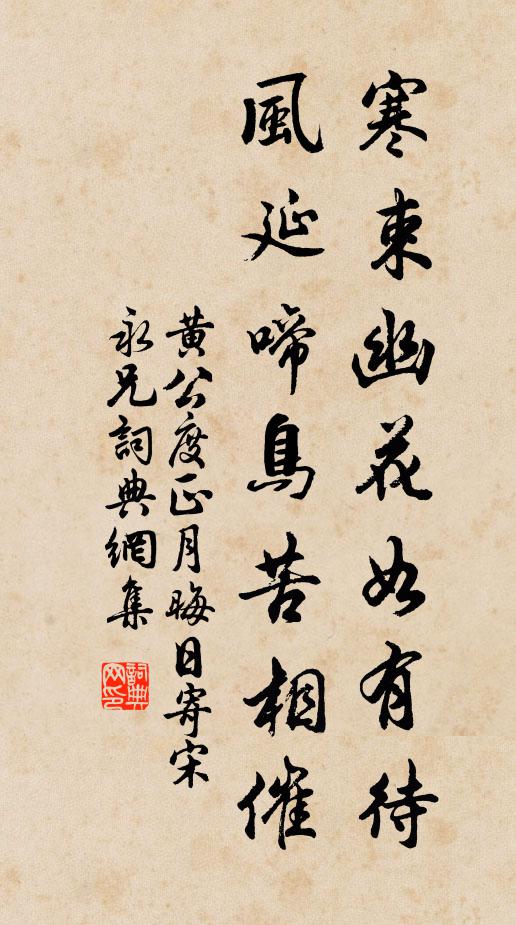 寒束幽花如有待
風延啼鳥苦相催
黃公度正月晦日寄宋
永兄詞典網集
詞典網印